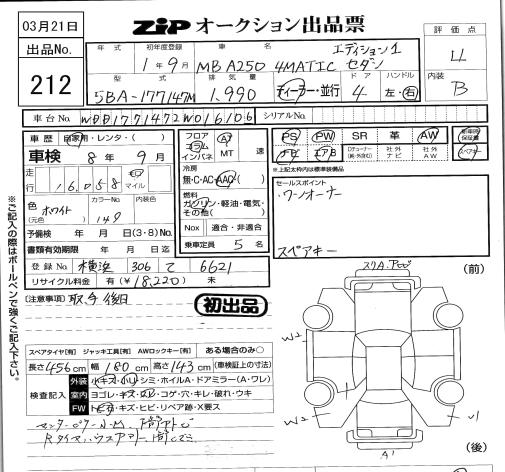 03月21日
ZIP オークション出品票
評価点
4
内装
B
出品No.
212
年式 初年度登録 車名
1年9月 MB A250 4MATIC エディション1 セダン
型式 排気量 ドア ハンドル
5BA-177147M 1,990 ディーラー・並行 4 左・右
車台No. WDD1771472W016106 シリアルNo.
車歴 自家用・レンタ・( )
車検 8年9月
走行 16,058 キロ マイル
色(元色) ホワイト カラーNo. 149 内装色
予備検 年 月 日(3・8)No.
書類有効期限 年 月 日迄
登録No. 横浜 306 て 6621
リサイクル料金 有(¥18,220) 未
フロア コラム インパネ AT MT 速
冷房 無・C・AC・AAC・( )
燃料 ガソリン・軽油・電気・その他( )
Nox 適合・非適合
乗車定員 5名
PS PW SR 革 AW 新車時保証書
ナビ エアB 社外ナビ 社外AW スペアキー
*上記太枠内は標準装備品
セールスポイント
・ワンオーナー
スペアキー
[注意事項] 取、手 後日
初出品
スペアタイヤ[有] ジャッキ工具[有] AWロックキー[有] ある場合のみ○
長さ456cm 幅180cm 高さ143cm (車検証上の寸法)
検査記入
外装 小キズ・小凹・シミ・ホイルA・ドアミラー(A・ワレ)
室内 ヨゴレ・キズ・スレ・コゲ・穴・キレ・破れ・ウキ
FW トビ・キズ・ヒビ・リペア跡・X要ス
※ご記入の際はボールペンで強くご記入下さい。
(前)
W2
W2
A1
(後)